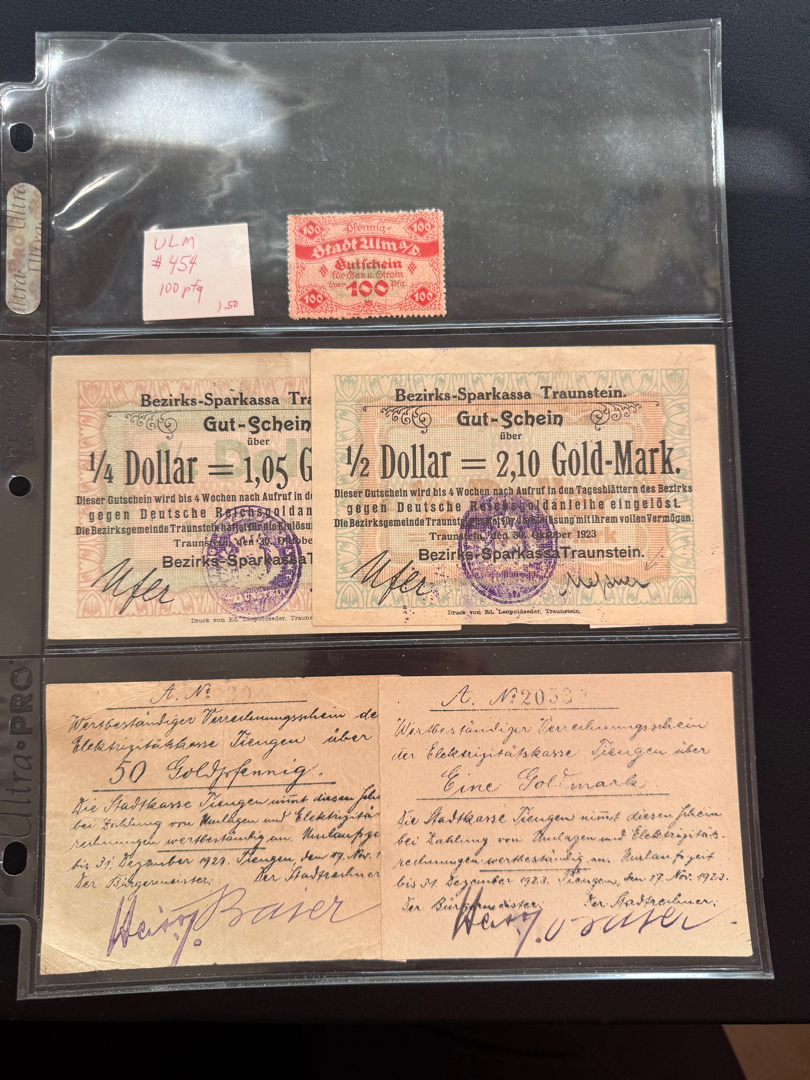 ULM
# 454
100 pfg
1.50
100 Pfennig- 100
Stadt Ulm a/D.
Gutschein
für Gas u. Strom
über 100 Pfg.
100 100
Bezirks-Sparkassa Tra
Gut-Schein
über
1/4 Dollar = 1,05 G
Dieser Gutschein wird bis 4 Wochen nach Aufruf in de
gegen Deutsche Reichsgoldanl
Die Bezirksgemeinde Traunstein haftet für die Einlösu
Traunstein, den 30. Oktobe
Bezirks-Sparkassa T
Ufer
Druck von Ed. Leopoldseder, Traunst
Bezirks-Sparkassa Traunstein.
Gut-Schein
über
1/2 Dollar = 2,10 Gold-Mark.
Dieser Gutschein wird bis 4 Wochen nach Aufruf in den Tagesblättern des Bezirks
gegen Deutsche Reichsgoldanleihe eingelöst.
Die Bezirksgemeinde Traunstein haftet für die Einlösung mit ihrem vollen Vermögen.
Traunstein, den 30. Oktober 1923
Bezirks-Sparkassa Traunstein.
Ufer
Druck von Ed. Leopoldseder, Traunstein.
A. No
Wertbeständiger Verrechnungsschein de
Elektrizitätskasse Tiengen über
50 Goldpfennig.
Die Stadtkasse Tiengen nimmt diesen Sche
bei Zahlung von Umlagen und Elektrizitä
rechnungen wertbeständig an. Umlaufze
bis 31. Dezember 1923. Tiengen, den 17. Nov. 1
Der Bürgermeister: Der Stadtrechner
Baier
A. No 2053
Wertbeständiger Verrechnungsschein
der Elektrizitätskasse Tiengen über
Eine Goldmark.
Die Stadtkasse Tiengen nimmt diesen Schein
bei Zahlung von Umlagen und Elektrizitäts-
rechnungen wertbeständig an. Umlaufzeit
bis 31. Dezember 1923. Tiengen, den 17. Nov. 1923.
Der Bürgermeister: Der Stadtrechner:
Baier
Ultra•PRO